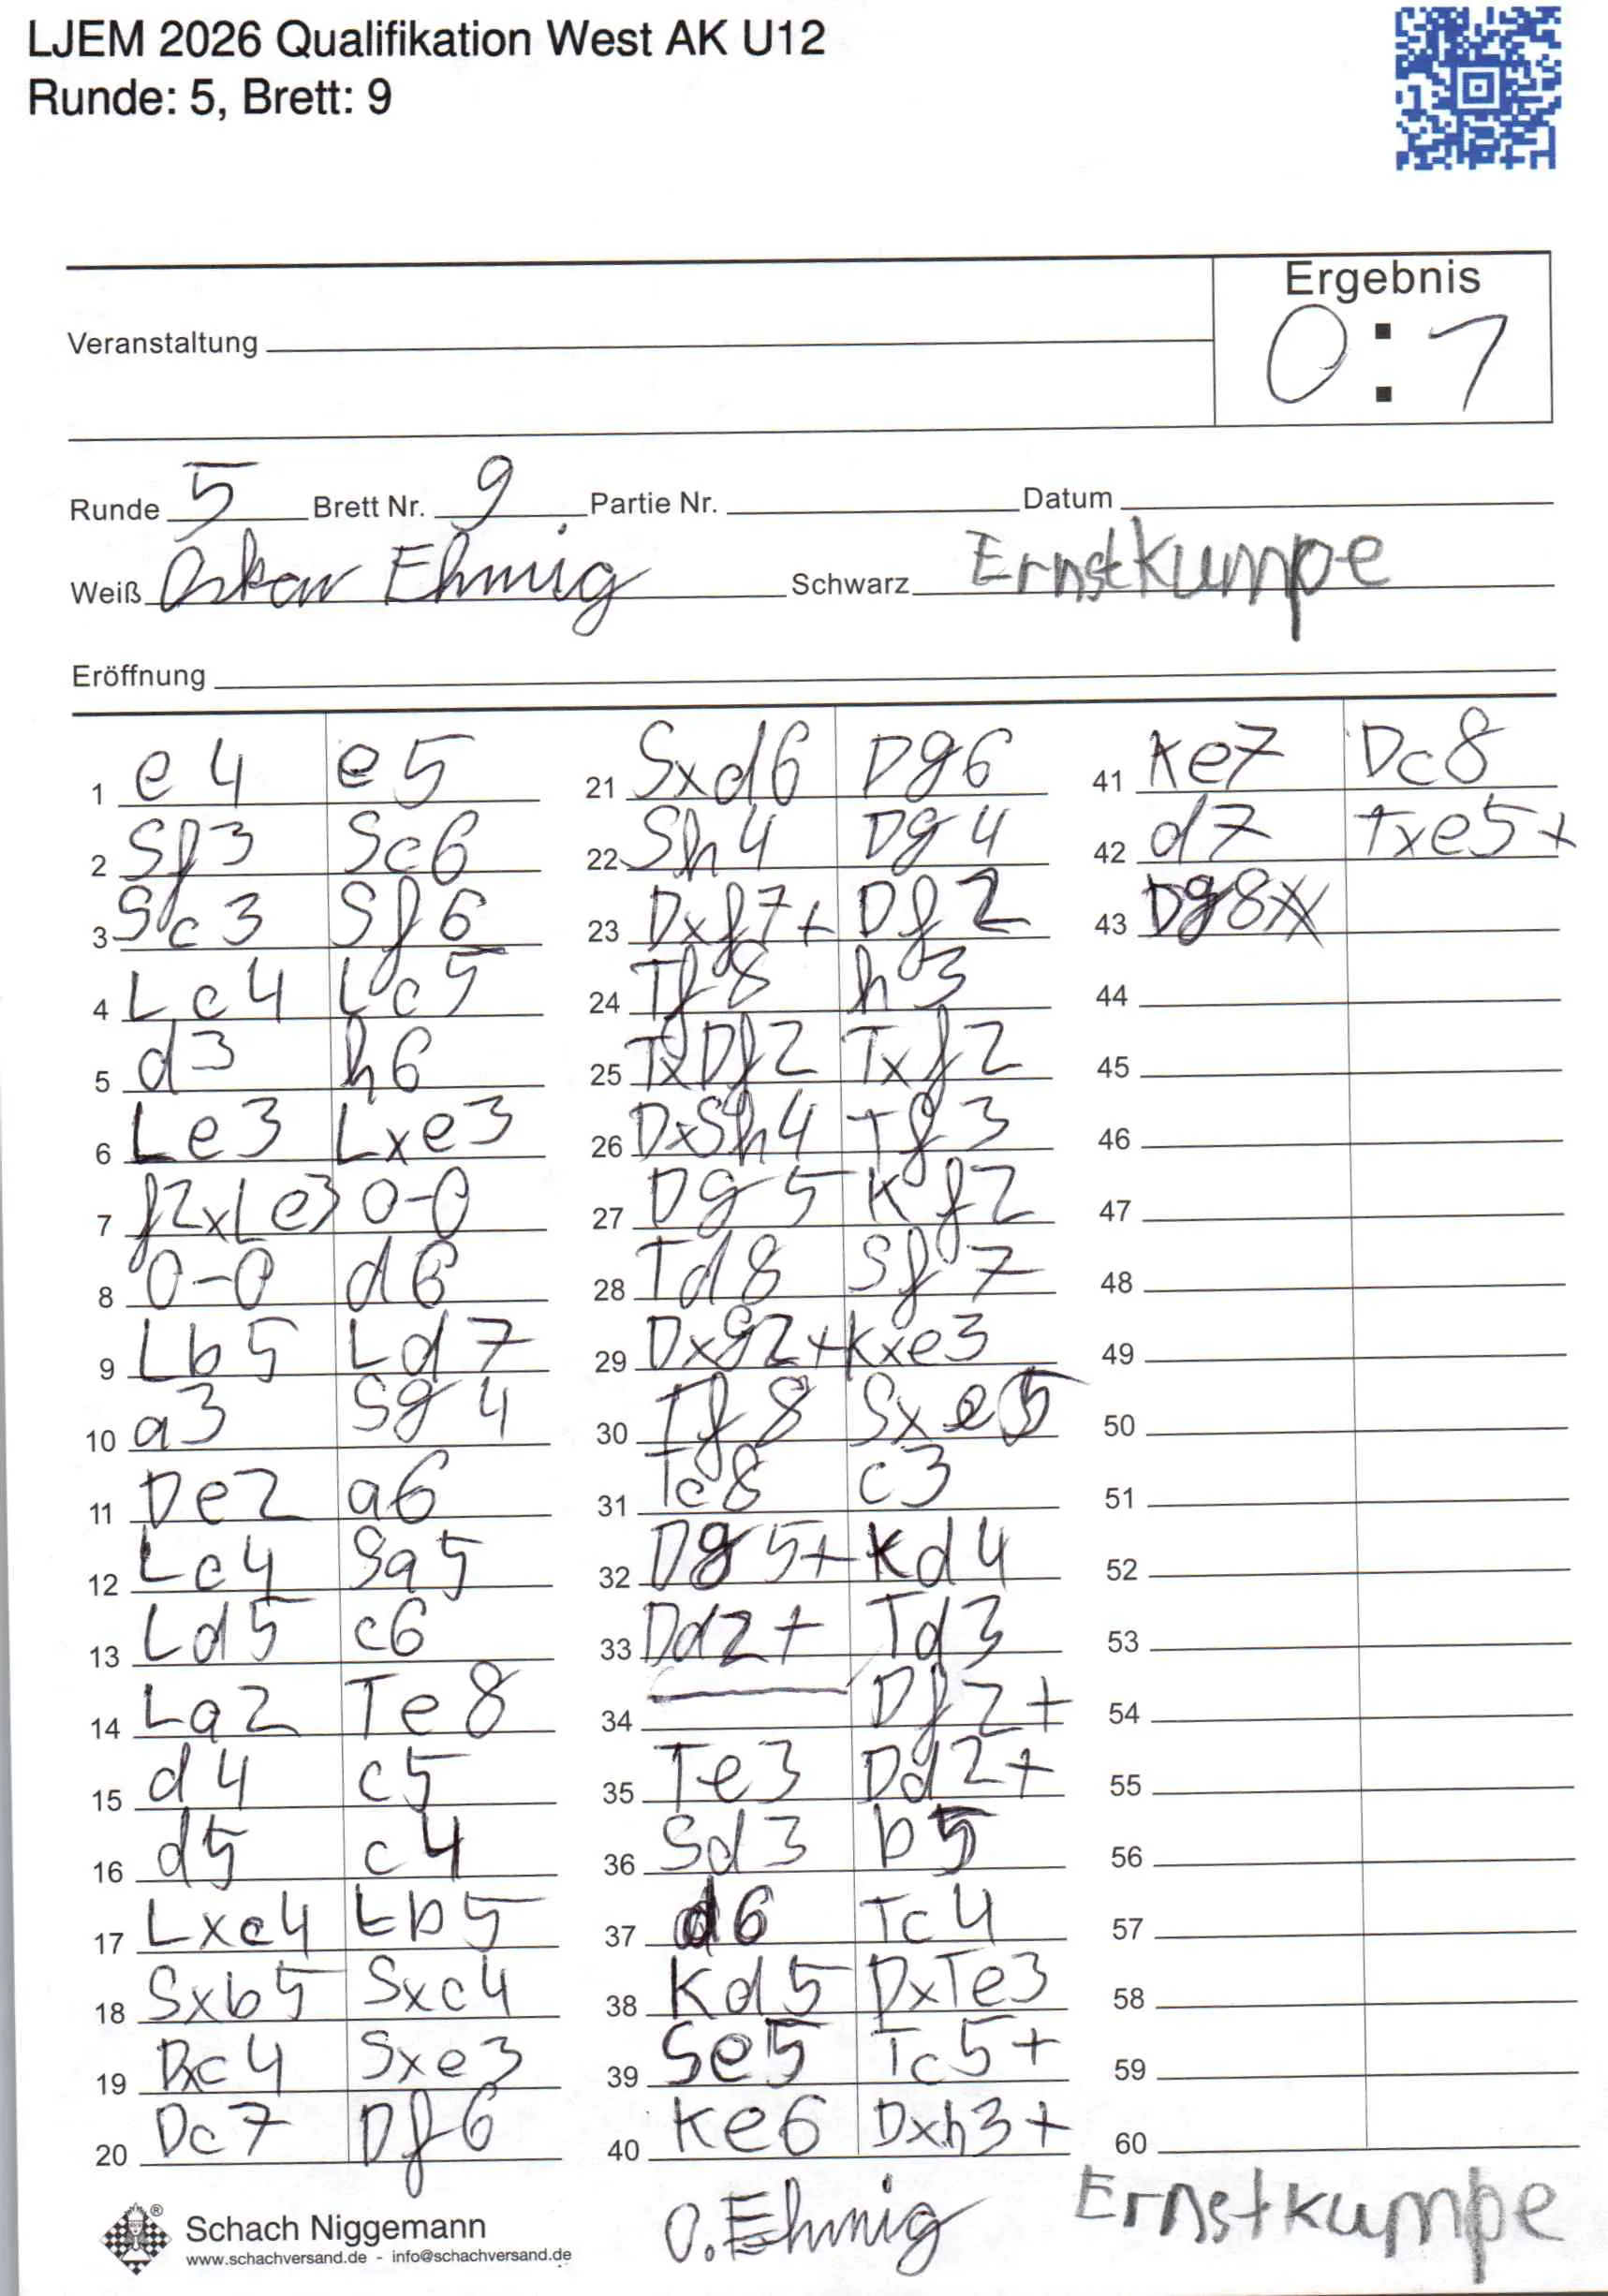 LJEM 2026 Qualifikation West AK U12
Runde: 5, Brett: 9
Ergebnis
0:1
Veranstaltung
Runde 5 Brett Nr. 9 Partie Nr. Datum
Weiß Oskar Ehmig Schwarz Ernstkumpe
Eröffnung
1 e4 e5
2 Sf3 Sc6
3 Sc3 Sf6
4 Lc4 Lc5
5 d3 h6
6 Le3 Lxe3
7 f2xLe3 0-0
8 0-0 d6
9 Lb5 Ld7
10 a3 Sg4
11 De2 a6
12 Lc4 Sa5
13 Ld5 c6
14 La2 Te8
15 d4 c5
16 d5 c4
17 Lxc4 Lb5
18 Sxb5 Sxc4
19 Dxc4 Sxe3
20 Dc7 Df6
21 Sxd6 Dg6
22 Sh4 Dg4
23 Dxf7+ Df2
24 Tf8 h3
25 TxDf2 Txf2
26 DxSh4 Tf3
27 Dg5 Kf2
28 Td8 Sf7
29 Dxg2+ Kxe3
30 Tf8 Sxe5
31 Te8 c3
32 Dg5+ Kd4
33 Dd2+ Td3
34 Df2+
35 Te3 Dd2+
36 Sd3 b5
37 d6 Tc4
38 Kd5 DxTe3
39 Se5 Tc5+
40 Ke6 Dxh3+
41 Ke7 Dc8
42 d7 Txe5+
43 Dg8
44
45
46
47
48
49
50
51
52
53
54
55
56
57
58
59
60
®
Schach Niggemann
www.schachversand.de - info@schachversand.de
O.Ehmig
Ernstkumpe